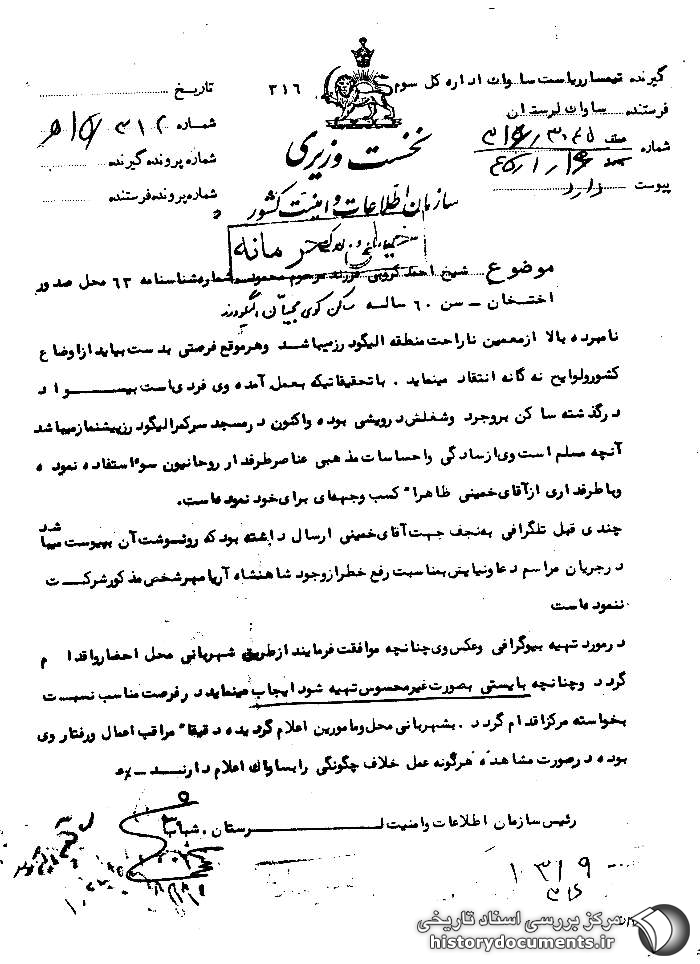 گیرنده تیمسار ریاست ساواک اداره کل سوم ۳۱۶
فرستنده ساواک لرستان
شماره
پیوست دارد
تاریخ
شماره ۳۱۲
شماره پرونده گیرنده
شماره پرونده فرستنده
نخست وزیری
سازمان اطلاعات و امنیت کشور
محرمانه
موضوع شیخ احمد کروبی فرزند مرحوم محمود شماره شناسنامه ۶۳ محل صدور
اختخان – سن ۶۰ ساله ساکن کوی الیگودرز
نامبرده بالا از معممین ناراحت منطقه الیگودرز میباشد وهر موقع فرصتی بدست بیاید از اوضاع
کشور ولوایح نه گانه انتقاد مینماید . با تحقیقاتیکه بعمل آمده وی فردی است بیسواد
در گذشته ساکن بروجرد وشغلش درویشی بوده واکنون در مسجد سرکمر الیگودرز پیشنماز میباشد
آنچه مسلم است وی از سادگی واحساسات مذهبی عناصر طرفدار روحانیون سوء استفاده نموده
وبا طرفداری از آقای خمینی ظاهرا" کسب وجهه‌ای برای خود نموده است.
چندی قبل تلگرافی به نجف جهت آقای خمینی ارسال داشته بود که رونوشت آن بپیوست میباشد
در جریان مراسم دعا ونیایش بمناسبت رفع خطر از وجود شاهنشاه آریامهر شخص مذکور شرکت
ننموده است
در مورد تهیه بیوگرافی وعکس وی چنانچه موافقت فرمایند از طریق شهربانی محل احضار واقدام
گردد وچنانچه بایستی بصورت غیر محسوس تهیه شود ایجاب مینماید در فرصت مناسب نسبت
بخواسته مرکز اقدام گردد . بشهربانی محل ومامورین اعلام گردیده دقیقا" مراقب اعمال ورفتار وی
بوده در صورت مشاهده هرگونه عمل خلاف چگونگی را بساواک اعلام دارند
رئیس سازمان اطلاعات وامنیت لرستان . شهاب
۱۳/۹
۳۶
مرکز بررسی اسناد تاریخی
historydocuments.ir